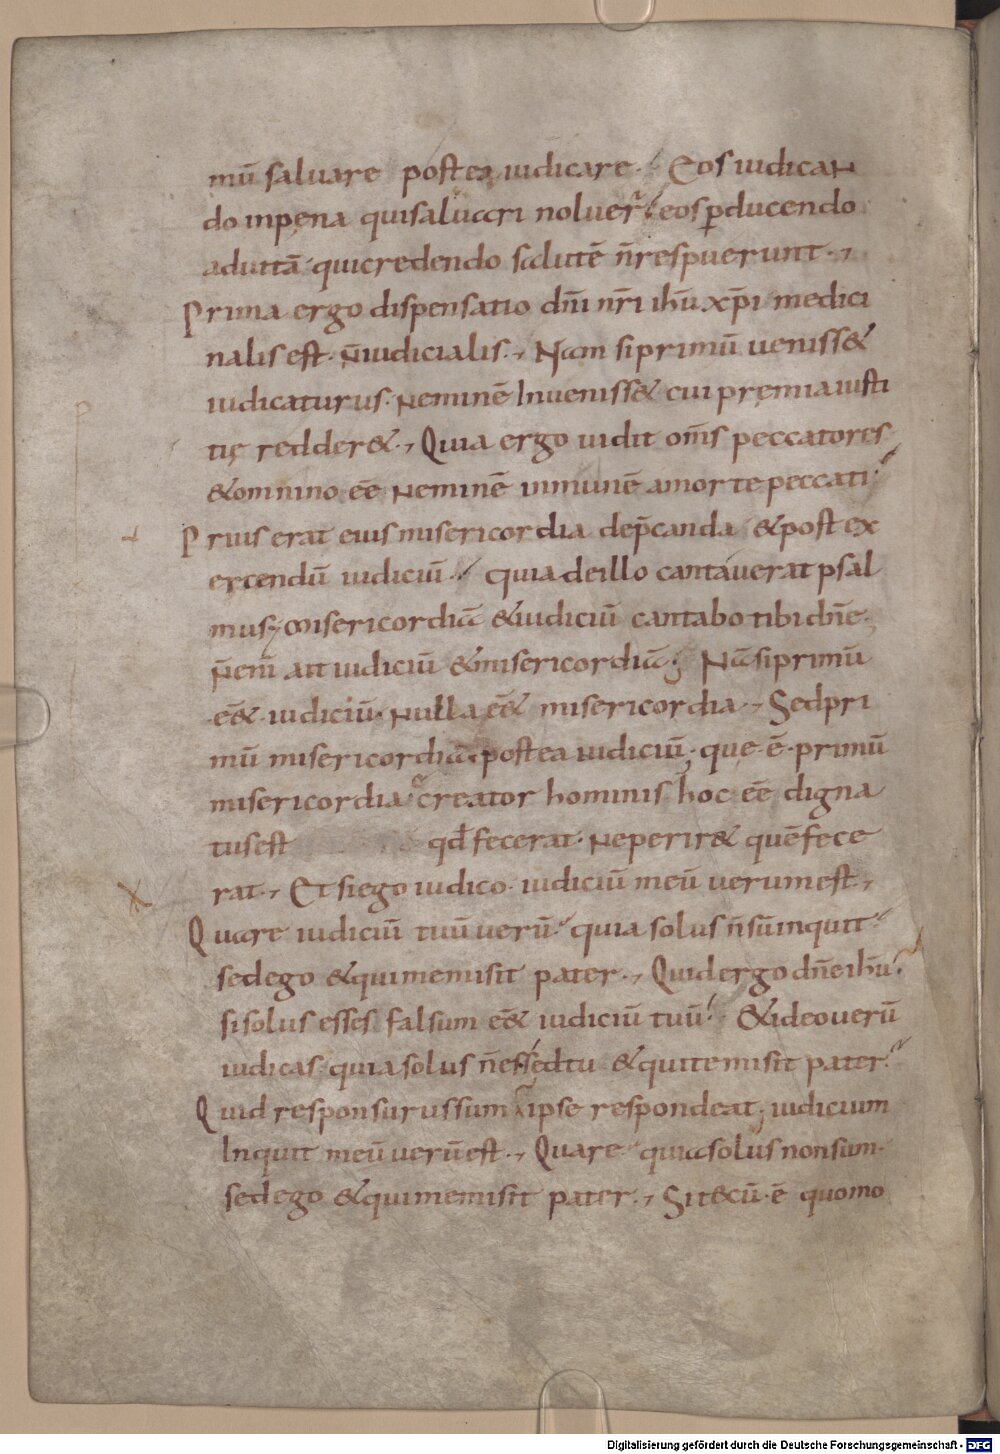 mū saluare postea iudicare. Eos iudican
do inpęna qui saluari noluer̄ eos ꝑducendo
aduitā qui credendo salutē n̄ respuerunt.,
Prima ergo dispensatio dn̄i nr̄i ihū xp̄i medici
nalis est. n̄ iudicialis., Nam si primū ueniss&
iudicaturus. neminē Inueniss& cui pręmia iusti
tię redder&., Quia ergo uidit om̄s peccatores
& omnino eē neminē inmunē amorte peccati.
Prius erat eius misericordia dep̄canda & post ex
ercendū iudiciū. quia deillo cantauerat psal
mus, misericordiā & iudiciū cantabo tibi dn̄e.
n̄ enī ait iudiciū & misericordiā. Nā si primū
eē& iudiciū. nulla eē& misericordia., Sed pri
mū misericordiā. postea iudiciū, quę ē primū
misericordia creator hominis hoc eē digna
tus est qd̄ fecerat. ne perir& quē fece
rat., Et si ego iudico. iudiciū meū uerum est.,
Quare iudiciū tuū uerū. quia solus n̄ sū inquit
sed ego & qui me misit pater., Quid ergo dn̄e ihū.
si solus esses falsum eē& iudiciū tuū. & ideo uerū
iudicas. quia solus n̄ es sed tu & qui te misit pater.
Quid responsurus sum ipse respondeat, iudicium
Inquit meū uerū est., Quare quia solus non sum.
sed ego & qui me misit pater., Si tecū ē quomo
Digitalisierung gefördert durch die Deutsche Forschungsgemeinschaft - DFG